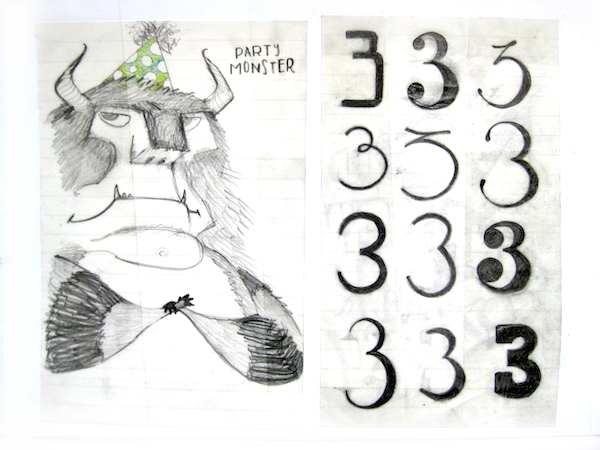 PARTY
MONSTER
3 3 3
3 3 3
3 3 3
3 3 3